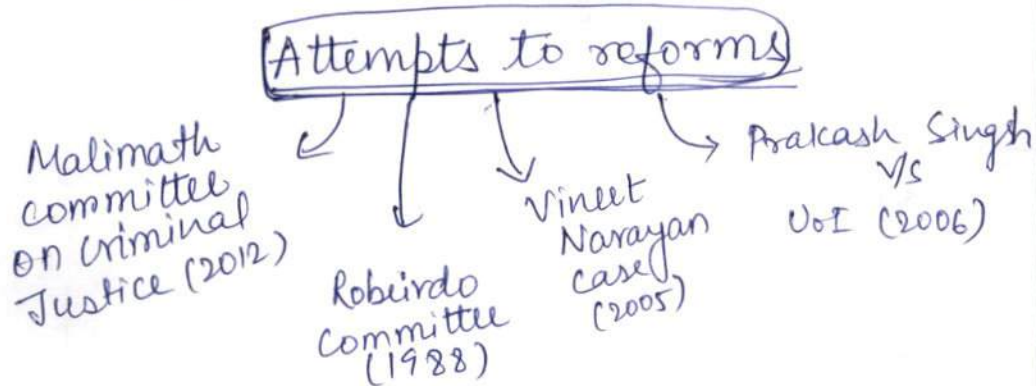 Attempts to reforms
Malimath
committee
on criminal
Justice (2012)
Robeirdo
committee
(1988)
Vineet
Narayan
case
(2005)
Prakash Singh
V/S
UoI (2006)